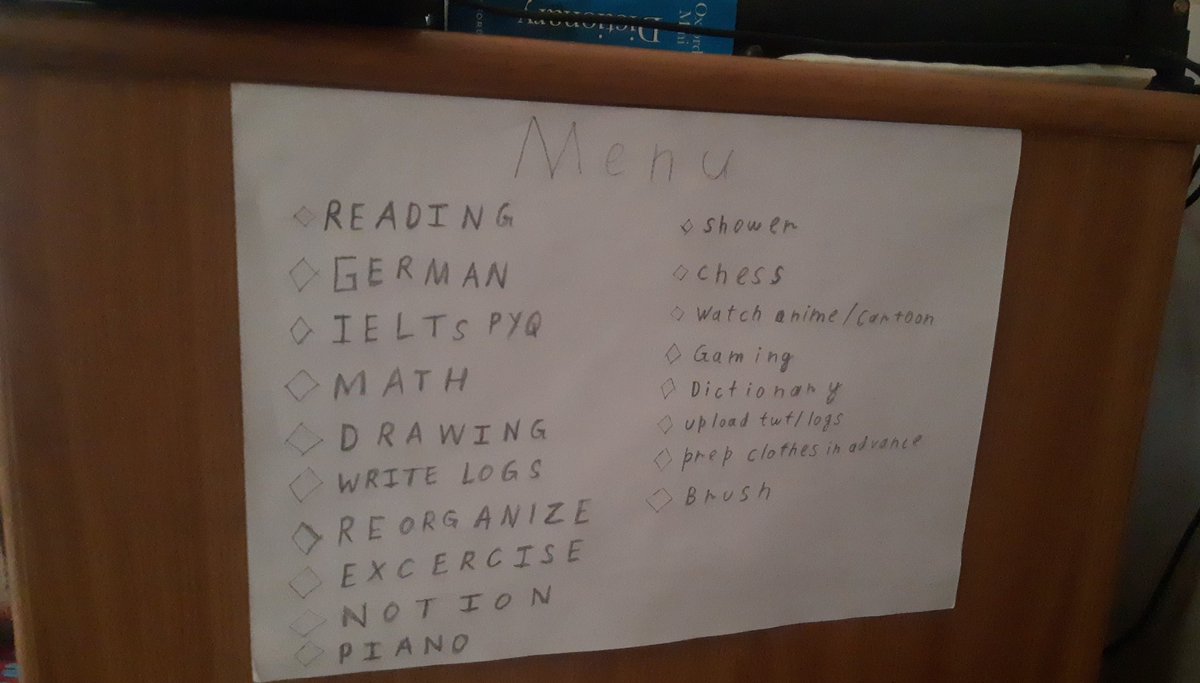 Oxford
Mini
Dictionary
Menu
READING
GERMAN
IELTs PYQ
MATH
DRAWING
WRITE LOGS
REORGANIZE
EXCERCISE
NOTION
PIANO
shower
chess
Watch anime/cartoon
Gaming
Dictionary
upload twt/logs
prep clothes in advance
Brush